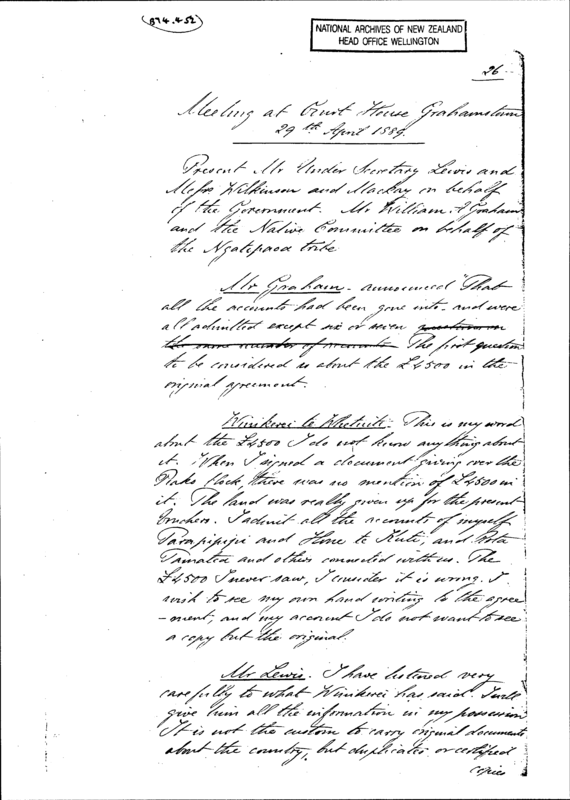 (874.452)
NATIONAL ARCHIVES OF NEW ZEALAND
HEAD OFFICE WELLINGTON
26
Meeting at Court House Grahamstown
29th April 1889.
Present Mr Under Secretary Lewis and
Messrs Wilkinson and Mackay on behalf
of the Government. Mr William A Graham
and the Native Committee on behalf of
the Ngatipaoa tribe
Mr Graham - announced "That
all the accounts had been gone into - and were
all admitted except six or seven question on
the same number of accounts The first question
to be considered is about the £4500 in the
original agreement.
Wiinikerei te Whetuiti. This is my word
about the £4500 I do not know anything about
it. When I signed a document giving over the
Piako block, there was no mention of £4500 in
it. The land was really given up for the present
vouchers. I admit all the accounts of myself
Tarapipipi and Hone te Kuti, and
Tamatea and others connected with us. The
£4500 I never saw, I consider it is wrong. I
wish to see my own hand writing to the agree
-ment, and my account I do not want to see
a copy but the original.
Mr Lewis. I have listened very
carefully to what Wiinikerei has said. I will
give him all the information in my possession
It is not the custom to carry original documents
about the country, but duplicates or certified
copies